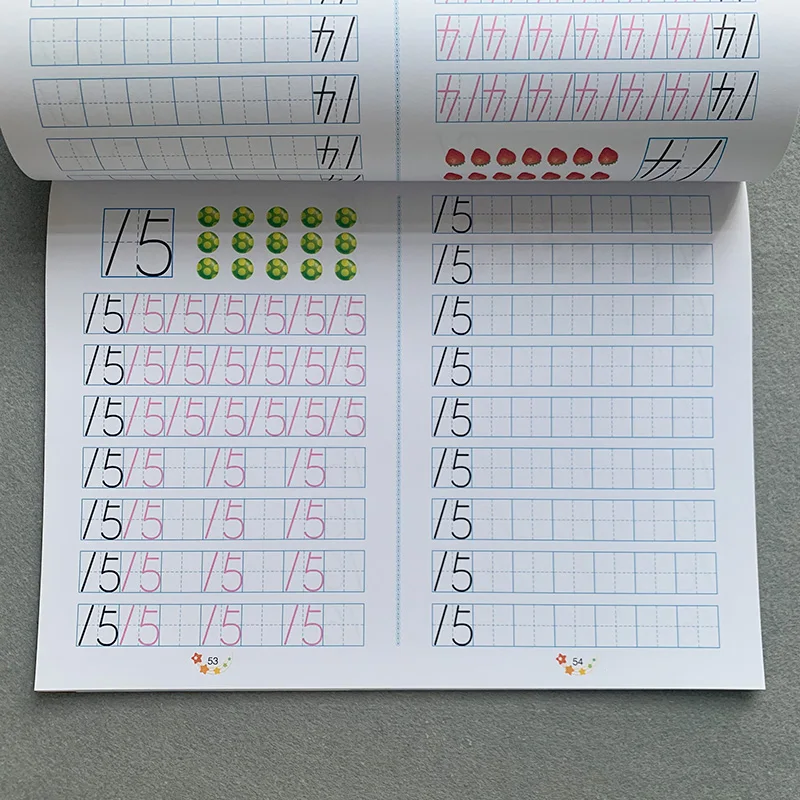 14
14
14
14 14 14 14 14 14 14
14 14 14 14 14 14 14
14
15
15 15 15 15 15 15 15
15 15 15 15 15 15 15
15 15 15 15 15 15 15
15 15 15 15
15 15 15 15
15 15 15 15
15 15 15 15
53
15
15
15
15
15
15
15
15
15
54